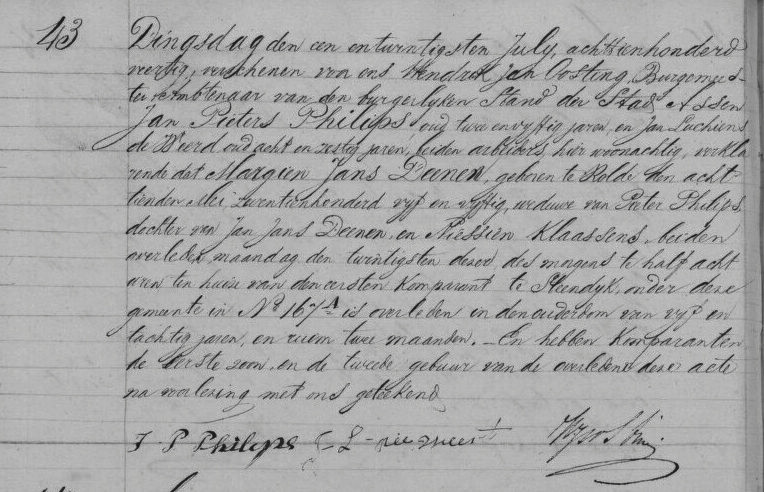 43
Dingsdag den een en twintigsten July, achttienhonderd
veertig, verschenen voor ons Hendrik Jan Oosting, Burgemees-
ter Ambtenaar van den burgerlyken Stand der Stad Assen
Jan Pieters Philips oud twee en vyftig jaren, en Jan Luchiens
de Weerd oud acht en zestig jaren, beiden arbeiders, hier woonachtig, verkla
rende dat Margien Jans Deenen, geboren te Rolde den acht
tienden Mei zeventienhonderd vyf en vyftig, weduwe van Pieter Philips,
dochter van Jan Jans Deenen en Niessien Klaassens, beiden
overleden, maandag den twintigsten dezer, des morgens te half acht
uren ten huize van den eersten Komparant te Steendyk, onder deze
gemeente in No 167A is overleden in den ouderdom van vyf en
tachtig jaren, en ruim twee maanden. – En hebben Komparanten
de eerste zoon, en de tweede gebuur van de overledene deze acte
na voorlezing met ons geteekend
J P Philips J L